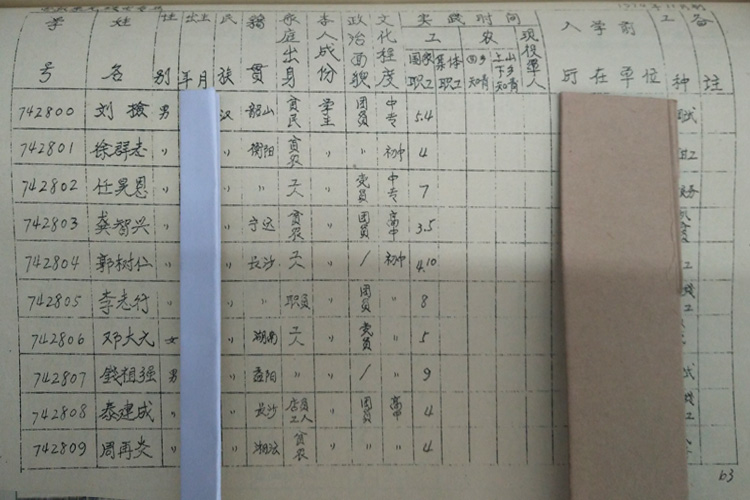 学号 姓名 性别 出生年月 民族 籍贯 家庭出身 本人成份 政治面貌 文化程度 实践时间 工 农 国家职工 集体职工 回乡知青 上山下乡知青 现役军人 入学前所在单位 工种 备注
742800 刘 男 汉 韶山 贫民 学生 团员 中专 5.4 试
742801 徐群志 〃 〃 衡阳 贫农 〃 〃 初中 4 工
742802 任昊恩 〃 〃 〃 工人 党员 中专 7 务
742803 龚智兴 〃 〃 宁远 贫农 团员 高中 3.5
742804 郭树仁 〃 〃 长沙 工人 / 初中 4.10 工
742805 李志行 〃 〃 〃 职员 团员 〃 8 工
742806 邓大元 女 〃 湖南 工人 党员 〃 5
742807 钱祖强 男 〃 益阳 〃 / 〃 9 试
742808 秦建成 〃 〃 长沙 店员工人 团员 高中 4 工
742809 周再炎 〃 〃 湘潭 贫农 〃 〃 4
63